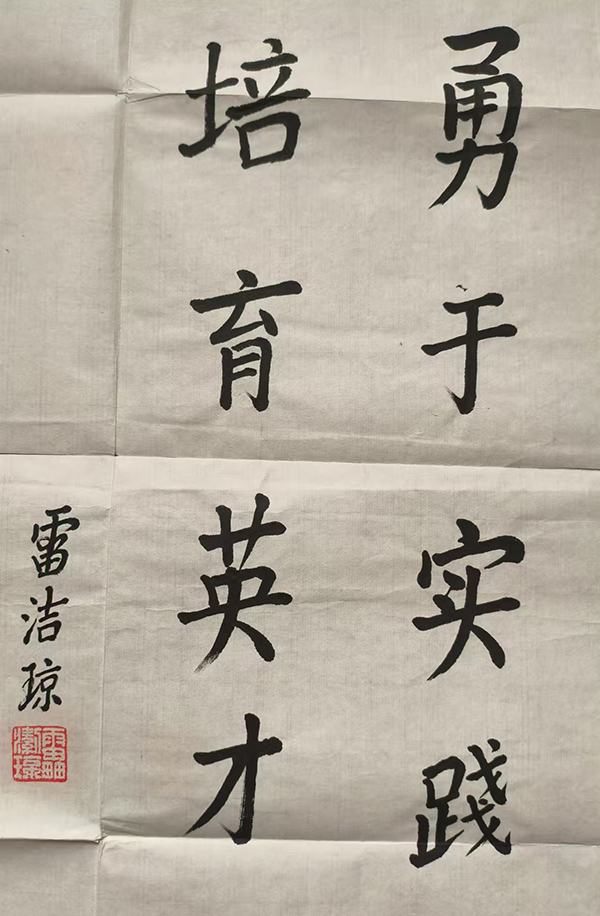 勇于实践
培育英才
雷洁琼